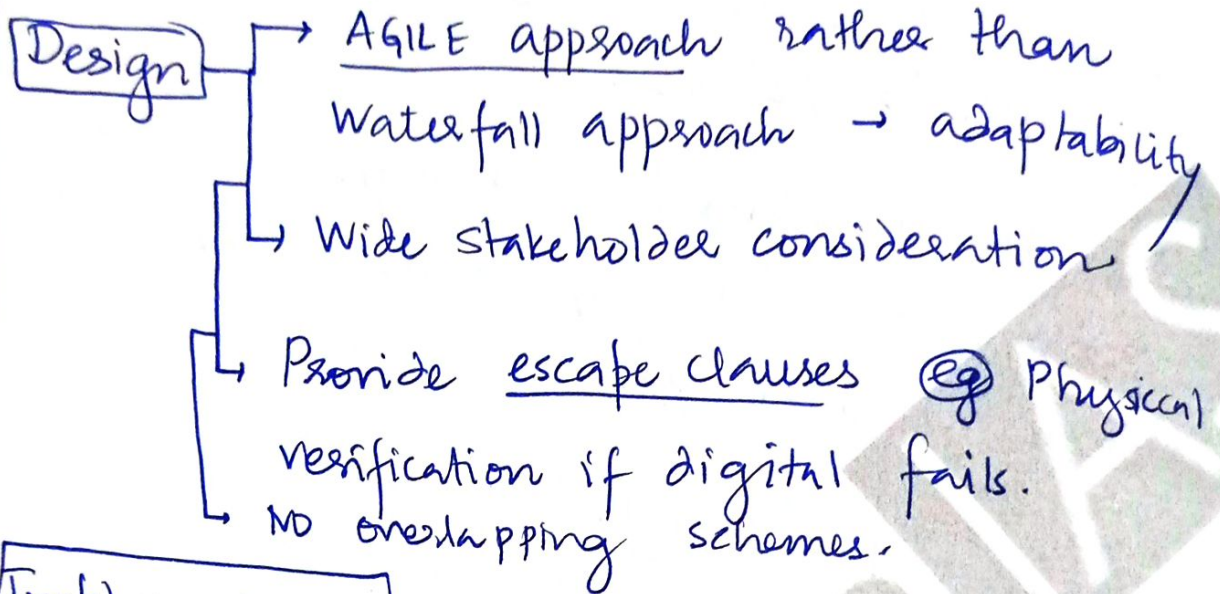 Design → AGILE approach rather than
Waterfall approach → adaptability
→ Wide stakeholder consideration
→ Provide escape clauses eg Physical
verification if digital fails.
→ NO overlapping schemes.